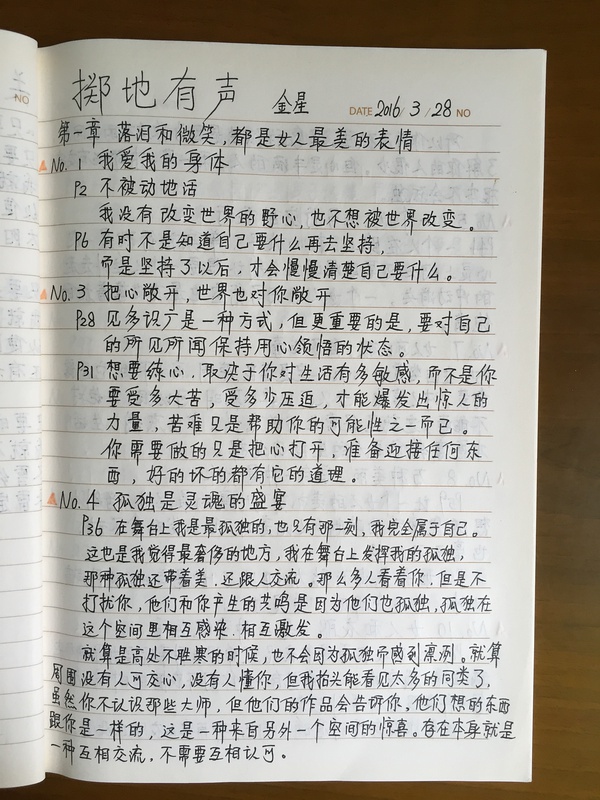 掷地有声 金星 DATE 2016/3/28 NO
第一章 落泪和微笑,都是女人最美的表情
No.1 我爱我的身体
P2 不被动地活
我没有改变世界的野心,也不想被世界改变。
P6 有时不是知道自己要什么再去坚持,
而是坚持了以后,才会慢慢清楚自己要什么。
No.3 把心敞开,世界也对你敞开
P28 见多识广是一种方式,但更重要的是,要对自己
的所见所闻保持用心领悟的状态。
P31 想要练心,取决于你对生活有多敏感,而不是你
要受多大苦,受多少压迫,才能爆发出惊人的
力量,苦难只是帮助你的可能性之一而已。
你需要做的只是把心打开,准备迎接任何东
西,好的坏的都有它的道理。
No.4 孤独是灵魂的盛宴
P36 在舞台上我是最孤独的,也只有那一刻,我完全属于自己。
这也是我觉得最奢侈的地方,我在舞台上发挥我的孤独,
那种孤独还带着美,还跟人交流。那么多人看着你,但是不
打扰你,他们和你产生的共鸣是因为他们也孤独,孤独在
这个空间里相互感染,相互激发。
就算是高处不胜寒的时候,也不会因为孤独而感到凛冽。就算
周围没有人可交心,没有人懂你,但我抬头能看见太多的同类了,
虽然你不认识那些大师,但他们的作品会告诉你,他们想的东西
跟你是一样的,这是一种来自另外一个空间的惊喜。存在本身就是
一种互相交流,不需要互相认可。